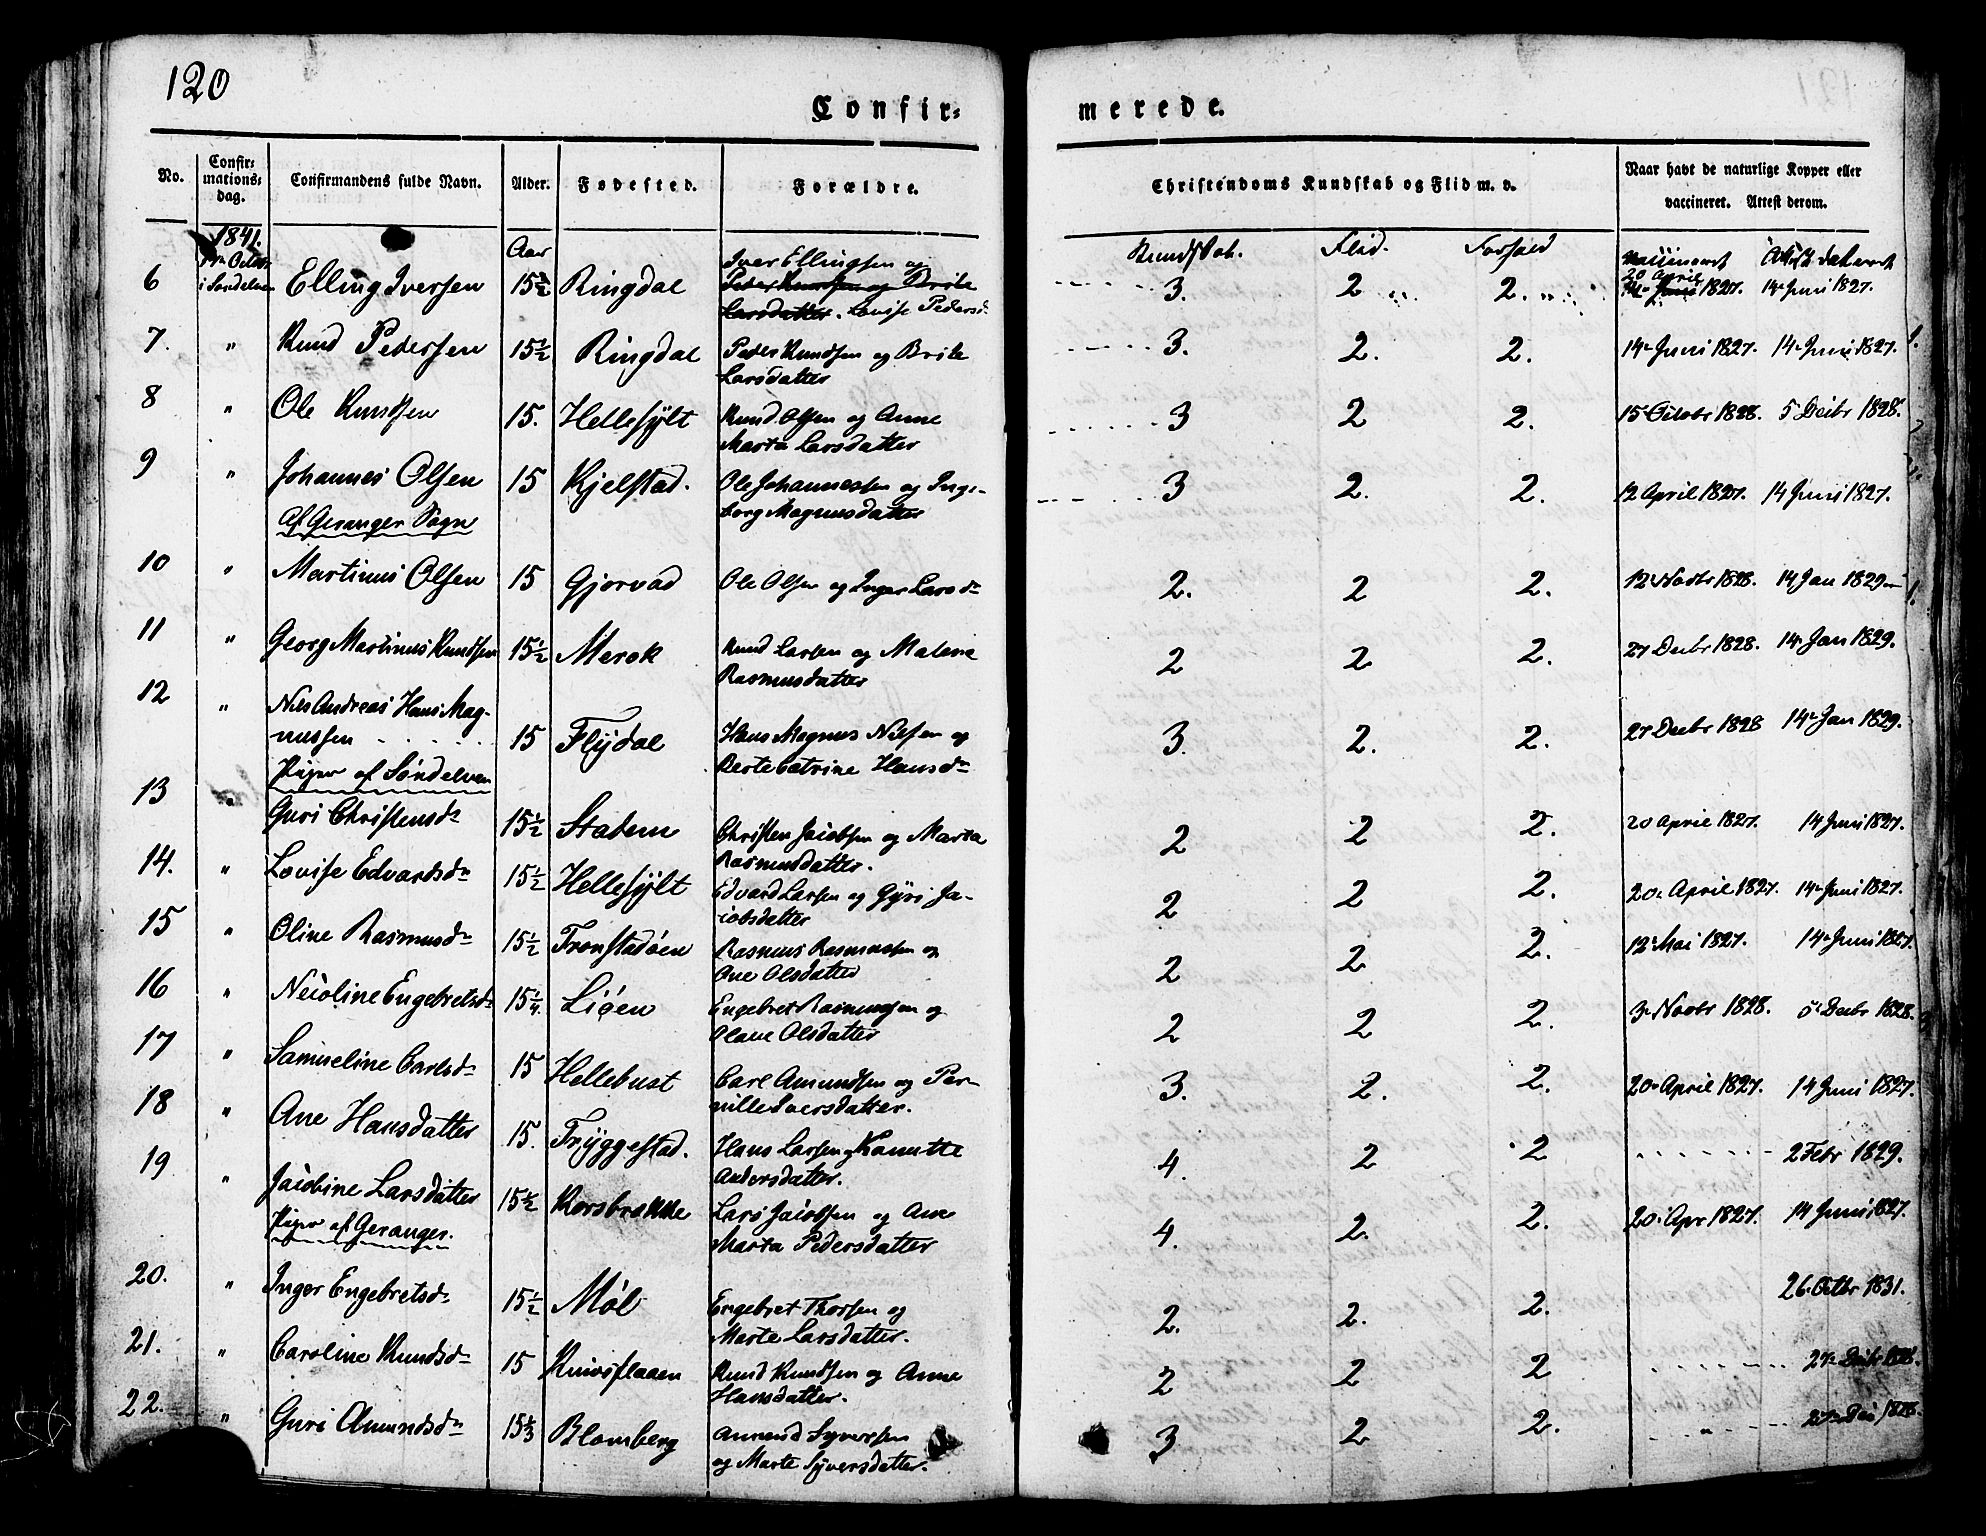 120
Confir=
merede.
No.
Confir=
mations=
dag.
Confirmandens fulde Navn.
Alder.
Fødested.
Forældre.
Christendoms Kundskab og Flid m. v.
Naar havt de naturlige Kopper eller
vaccineret. Attest derom.
1841.
Aar
Kundskab. Flid. Forhold
6 i Søndelven Elling Iversen 15½ Ringdal Iver Ellingsen og
Peder Knudsen og Brite
Larsdatter. Lovise Pedersd.
3. 2 2. 20 April 1827. 14 Juni 1827.
7. " Knud Pedersen 15½ Ringdal Peder Knudsen og Brite
Larsdatter
3. 2. 2. 14 Juni 1827. 14 Juni 1827.
8 " Ole Knudsen 15. Hellesylt Knud Olsen og Anne
Marta Larsdatter
3 2 2. 15 Octobr 1828. 5 Decbr 1828.
9 " Johannes Olsen 15 Kjelstad. Ole Johannessen og Inge-
borg Magnusdatter
3 2. 2. 12 April 1827. 14 Juni 1827.
Af Geranger Sogn
10 " Martinus Olsen 15 Gjørvad Ole Olsen og Inger Larsd
2. 2 2. 12 Novbr 1828. 14 Jan 1829
11 " Georg Martinus Knudsen 15½ Merok Knud Larsen og Malene
Rasmusdatter
2 2 2. 27 Decbr 1828. 14 Jan 1829.
12 " Nils Andreas Hans Mag-
nussen 15 Flydal Hans Magnus Nilsen og
Berte Catrine Hansd
3. 2. 2. 27 Decbr 1828 14 Jan 1829.
Piger af Søndelven
13 " Guri Christensd 15½ Stadem Christen Jacobsen og Marta
Rasmusdatter.
2 2 2. 20 April 1827. 14 Juni 1827.
14. " Lovise Edvardsd 15½ Hellesylt Edvard Larsen og Gyri Ja-
cobsdatter
2 2 2. 20 April 1827. 14 Juni 1827.
15 " Oline Rasmusd 15½ Tronstadøen Rasmus Rasmussen og
Ane Olsdatter
2 2 2. 12 Mai 1827. 14 Juni 1827.
16 " Nicoline Engebretsd 15¼. Liøen Engebret Rasmussen og
Olave Olsdatter
2 2 2. 3 Novbr 1828. 5 Decbr 1828.
17 " Samueline Carlsd 15 Hellebust Carl Amundsen og Per-
nille Iversdatter.
3. 2. 2. 20 April 1827. 14 Juni 1827.
18 " Ane Hansdatter 15. Tryggestad. Hans Larsen og Kanutte
Andersdatter.
4. 2 2 2 Febr 1829.
19 " Jacobine Larsdatter 15½ Korsbrekke Lars Jacobsen og Ane
Marta Pedersdatter
4. 2. 2. 20 Apr 1827. 14 Juni 1827.
Piger af Geranger.
20. " Inger Engebretsd 15½ Møl Engebret Thorsen og
Marte Larsdatter.
2. 2. 2. 26 Octbr 1831.
21. " Caroline Knudsd 15 Knivsflaaen Knud Knudsen og Anne
Hansdatter.
2 2 2 27 Decbr 1828.
22. " Guri Amundsd 15⅓ Blomberg Amund Syversen
og Marte Syversdatter.
3 2 2. 27 Dec 1828.